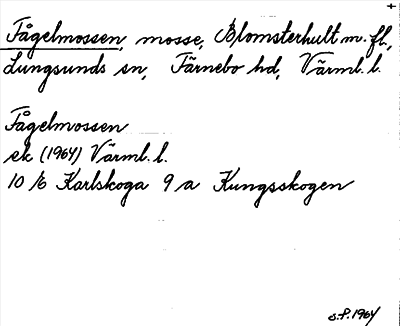 Fågelmossen, mosse, Blomsterhult m. fl.,
Lungsunds sn, Färnebo hd, Värml. l.
Fågelmossen
ek (1964) Värml. l.
10 E Karlskoga 9 a Kungsskogen
S.P. 1964